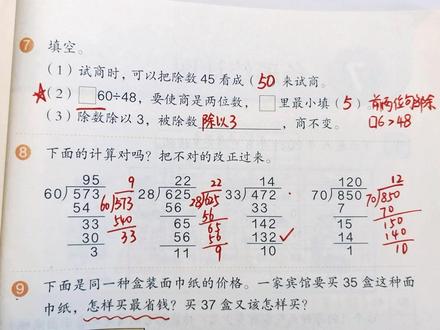 7 填空。
(1) 试商时，可以把除数 45 看成 ( 50 来试商。
☆(2) □60÷48，要使商是两位数，□里最小填 ( 5 ) 前两位句部余
□6>48
(3) 除数除以 3，被除数 除以3 ，商不变。
8 下面的计算对吗？把不对的改正过来。
95 9 22 22 14 120 12
60)573 60)573 28)625 28)625 33)472 70)850 70)850
54 540 56 56 33 7 70
33 33 65 65 142 15 150
30 56 56 132 ✓ 14 140
3 11 9 10 1 10
9 下面是同一种盒装面巾纸的价格。一家宾馆要买 35 盒这种面
巾纸，怎样买最省钱？买 37 盒又该怎样买？